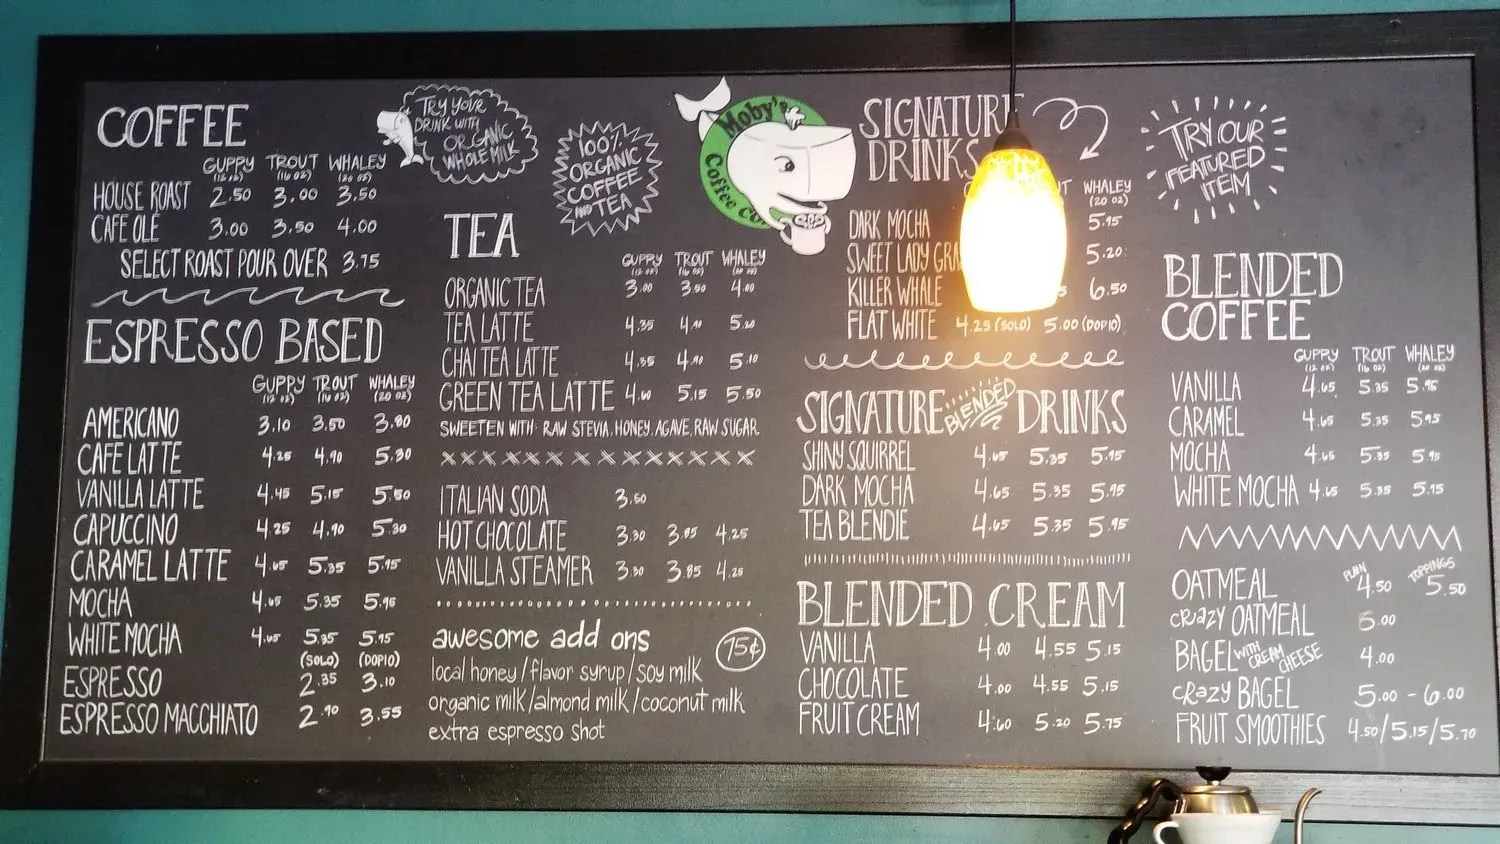 COFFEE
GUPPY TROUT WHALEY
(12 OZ) (16 OZ) (20 OZ)
HOUSE ROAST 2.50 3.00 3.50
CAFE OLE 3.00 3.50 4.00
SELECT ROAST POUR OVER 3.75
ESPRESSO BASED
GUPPY TROUT WHALEY
(12 OZ) (16 OZ) (20 OZ)
AMERICANO 3.10 3.50 3.80
CAFE LATTE 4.25 4.90 5.30
VANILLA LATTE 4.45 5.15 5.50
CAPUCCINO 4.25 4.90 5.30
CARAMEL LATTE 4.65 5.35 5.95
MOCHA 4.65 5.35 5.95
WHITE MOCHA 4.65 5.35 5.95
(SOLO) (DOPIO)
ESPRESSO 2.35 3.10
ESPRESSO MACCHIATO 2.90 3.55
TRY YOUR
DRINK WITH
ORGANIC
WHOLE MILK
100%
ORGANIC
COFFEE
AND TEA
Moby's
Coffee Co
TEA
GUPPY TROUT WHALEY
(12 OZ) (16 OZ) (20 OZ)
ORGANIC TEA 3.00 3.50 4.00
TEA LATTE 4.35 4.90 5.20
CHAI TEA LATTE 4.35 4.90 5.10
GREEN TEA LATTE 4.60 5.15 5.50
SWEETEN WITH: RAW STEVIA, HONEY, AGAVE, RAW SUGAR
ITALIAN SODA 3.50
HOT CHOCOLATE 3.30 3.85 4.25
VANILLA STEAMER 3.30 3.85 4.25
awesome add ons 75¢
local honey/flavor syrup/soy milk
organic milk/almond milk/coconut milk
extra espresso shot
SIGNATURE
DRINKS
WHALEY
(20 OZ)
DARK MOCHA 5.95
SWEET LADY GRA 5.20
KILLER WHALE 6.50
FLAT WHITE 4.25 (SOLO) 5.00 (DOPIO)
SIGNATURE BLENDED DRINKS
SHINY SQUIRREL 4.65 5.35 5.95
DARK MOCHA 4.65 5.35 5.95
TEA BLENDIE 4.65 5.35 5.95
BLENDED CREAM
VANILLA 4.00 4.55 5.15
CHOCOLATE 4.00 4.55 5.15
FRUIT CREAM 4.60 5.20 5.75
TRY OUR
FEATURED
ITEM
BLENDED
COFFEE
GUPPY TROUT WHALEY
(12 OZ) (16 OZ) (20 OZ)
VANILLA 4.65 5.35 5.95
CARAMEL 4.65 5.35 5.95
MOCHA 4.65 5.35 5.95
WHITE MOCHA 4.65 5.35 5.95
PLAIN TOPPINGS
OATMEAL 4.50 5.50
CRAZY OATMEAL 6.00
BAGEL WITH CREAM CHEESE 4.00
CRAZY BAGEL 5.00 - 6.00
FRUIT SMOOTHIES 4.50/5.15/5.70